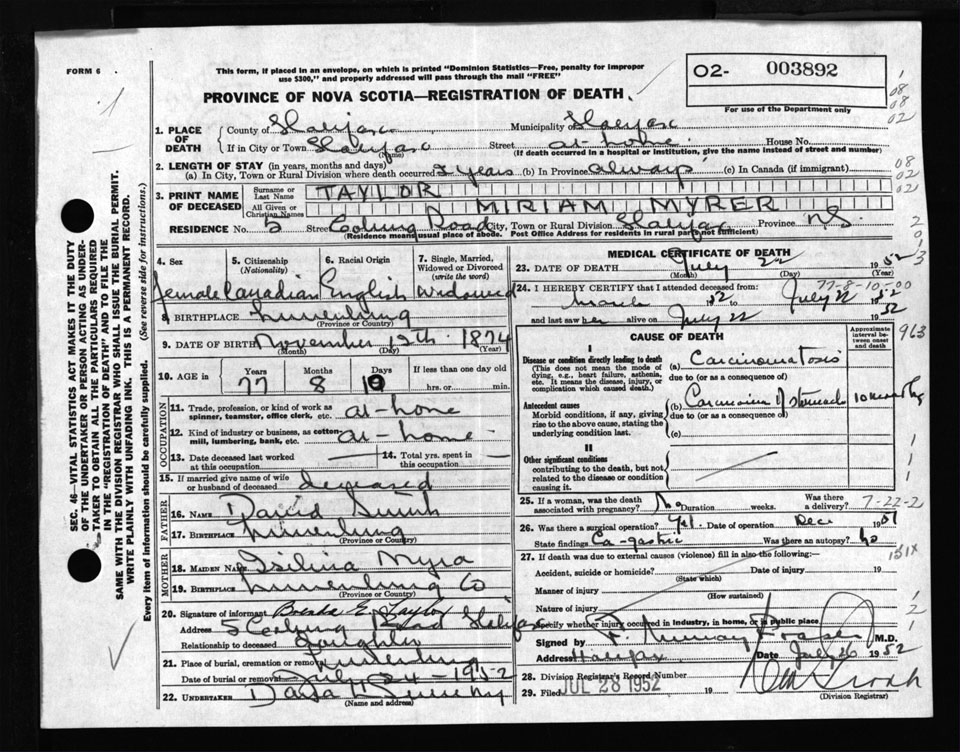 FORM 6
This form, if placed in an envelope, on which is printed "Dominion Statistics—Free, penalty for improper
use $300," and properly addressed will pass through the mail "FREE"
PROVINCE OF NOVA SCOTIA—REGISTRATION OF DEATH
O2- 003892
For use of the Department only
SEC. 46—VITAL STATISTICS ACT MAKES IT THE DUTY
OF THE UNDERTAKER OR PERSON ACTING AS UNDER-
TAKER TO OBTAIN ALL THE PARTICULARS REQUIRED
IN THE "REGISTRATION OF DEATH" AND TO FILE THE
SAME WITH THE DIVISION REGISTRAR WHO SHALL ISSUE THE BURIAL PERMIT.
WRITE PLAINLY WITH UNFADING INK. THIS IS A PERMANENT RECORD.
Every item of information should be carefully supplied. (See reverse side for instructions.)
1. PLACE OF DEATH
County of Halifax Municipality of Halifax
If in City or Town Halifax Street at home House No.
(Name) (If death occurred in a hospital or institution, give the name instead of street and number)
2. LENGTH OF STAY (in years, months and days)
(a) In City, Town or Rural Division where death occurred years (b) In Province always (c) In Canada (if immigrant)
3. PRINT NAME OF DECEASED
Surname or Last Name TAYLOR
All Given or Christian Names MIRIAM MYRER
RESIDENCE No. 5 Street Road City, Town or Rural Division Halifax Province N.S.
(Residence means usual place of abode. Post Office Address for residents in rural parts not sufficient)
4. Sex female
5. Citizenship (Nationality) Canadian
6. Racial Origin English
7. Single, Married, Widowed or Divorced (write the word) widowed
8. BIRTHPLACE Lunenburg
(Province or Country)
9. DATE OF BIRTH November 12th 1874
(Month) (Day) (Year)
10. AGE in Years 77 Months 8 Days 10 If less than one day old
hrs. or min.
OCCUPATION
11. Trade, profession, or kind of work as spinner, teamster, office clerk, etc. at-home
12. Kind of industry or business, as cotton-mill, lumbering, bank, etc. at-home
13. Date deceased last worked at this occupation
14. Total yrs. spent in this occupation
15. If married give name of wife or husband of deceased deceased
FATHER
16. NAME David Smith
17. BIRTHPLACE Lunenburg
(Province or Country)
MOTHER
18. MAIDEN NAME Myra
19. BIRTHPLACE Lunenburg Co
(Province or Country)
20. Signature of informant E. Taylor
Address 5 Road Halifax
Relationship to deceased Daughter
21. Place of burial, cremation or removal Lunenburg
Date of burial or removal July 24 - 1952
22. UNDERTAKER
(Name and address)
MEDICAL CERTIFICATE OF DEATH
23. DATE OF DEATH July 22 1952
(Month) (Day) (Year)
77-8-10-00
24. I HEREBY CERTIFY that I attended deceased from:
March 1952 to July 22 1952
and last saw her alive on July 22 1952
CAUSE OF DEATH
Approximate interval between onset and death
963
I
Disease or condition directly leading to death
(This does not mean the mode of dying, e.g., heart failure, asthenia, etc. It means the disease, injury, or complication which caused death.)
(a) Carcinomatosis
due to (or as a consequence of)
Antecedent causes
Morbid conditions, if any, giving rise to the above cause, stating the underlying condition last.
(b) Carcinoma of stomach 10 months
due to (or as a consequence of)
(c)
II
Other significant conditions
contributing to the death, but not related to the disease or condition causing it.
25. If a woman, was the death associated with pregnancy? No Duration weeks. Was there a delivery?
7-22-2
26. Was there a surgical operation? Yes. Date of operation Dec 1951
State findings Ca-gastric Was there an autopsy? No
151X
27. If death was due to external causes (violence) fill in also the following:—
Accident, suicide or homicide? Date of injury 19
(State which)
Manner of injury
(How sustained)
Nature of injury
Specify whether injury occurred in industry, in home, or in public place
Signed by F. Murray Fraser M.D.
Address Halifax Date July 26 1952
28. Division Registrar's Record Number
29. Filed JUL 28 1952 19
(Division Registrar)